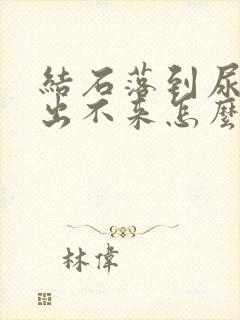 結石落到尿
出不来怎麼
林偉